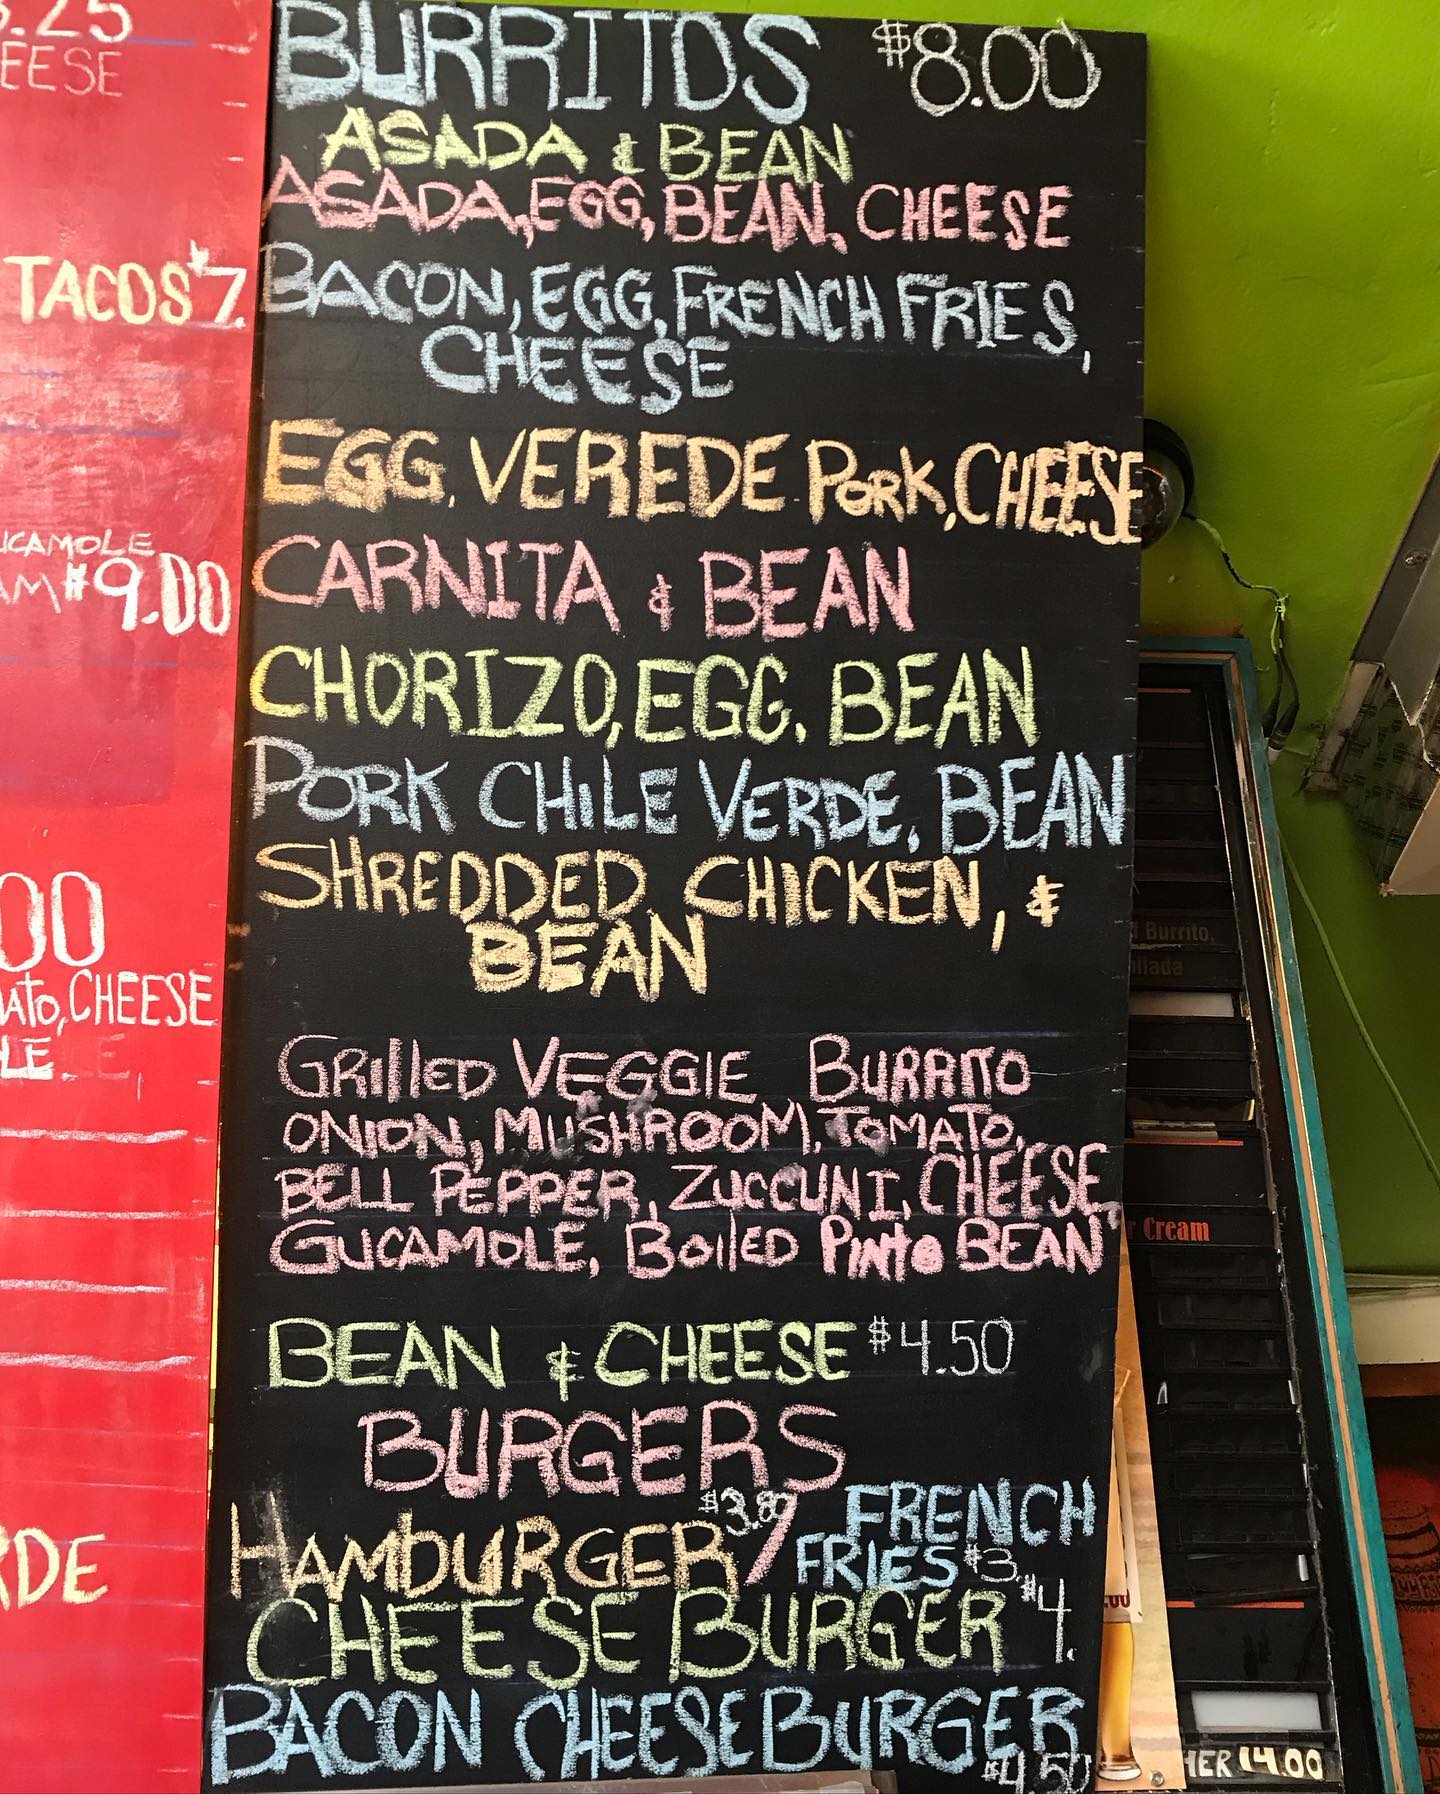 BURRITOS $8.00
ASADA & BEAN
ASADA, EGG, BEAN, CHEESE
BACON, EGG, FRENCH FRIES,
CHEESE
EGG, VEREDE PORK, CHEESE
CARNITA & BEAN
CHORIZO, EGG, BEAN
PORK CHILE VERDE, BEAN
SHREDDED CHICKEN, &
BEAN
GRILLED VEGGIE BURRITO
ONION, MUSHROOM, TOMATO,
BELL PEPPER, ZUCCUNI, CHEESE,
GUCAMOLE, BOILED PINTO BEAN
BEAN & CHEESE $4.50
BURGERS
HAMBURGER $3.87 FRENCH
FRIES $3.
CHEESE BURGER $4.
BACON CHEESE BURGER
$4.50
.25
EESE
TACOS $7.
UCAMOLE
AM $9.00
00
ATO, CHEESE
LE
RDE
d Burrito,
llada
r Cream
HER 14.00